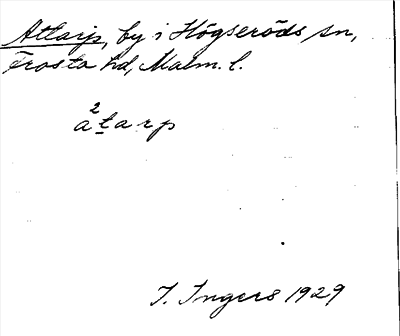 Attarp, by i Högseröds sn,
Frosta hd, Malm. l.
a²tarp
I. Ingers 1929